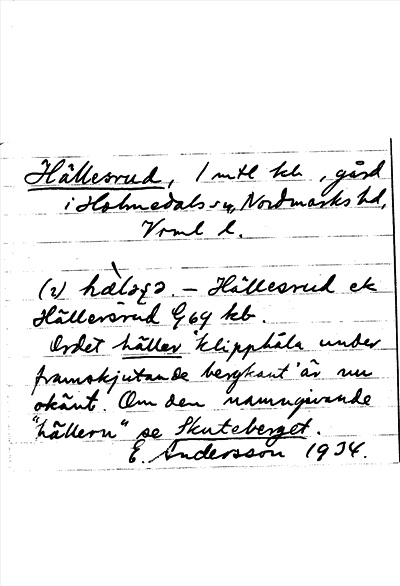 Hällesrud, 1 mtl kb, gård
i Holmedals sn, Nordmarks hd,
Vrml l.
(i) hæ̀ləʂə. – Hällesrud ek
Hällersrud G69 kb.
Ordet häller 'klipphåla under
framskjutande bergkant' är nu
okänt. Om den namngivande
"hällern" se Skuteberget.
E. Andersson 1934.